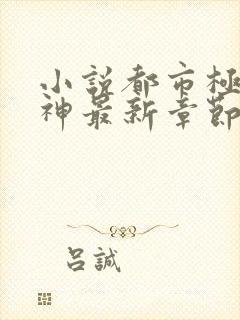 小説都市極
神最新章節
呂誠